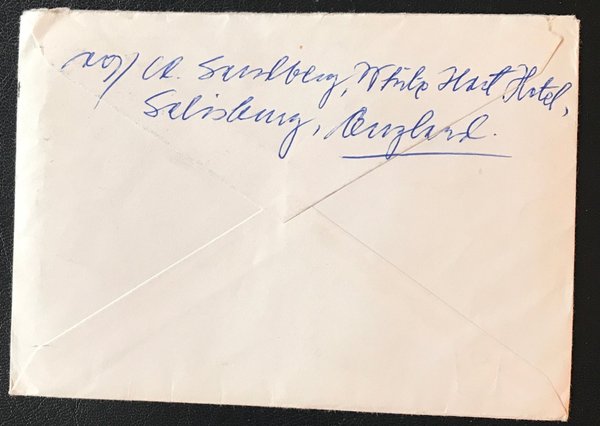 A. Sandberg, White Hart Hotel,
Salisbury, England.